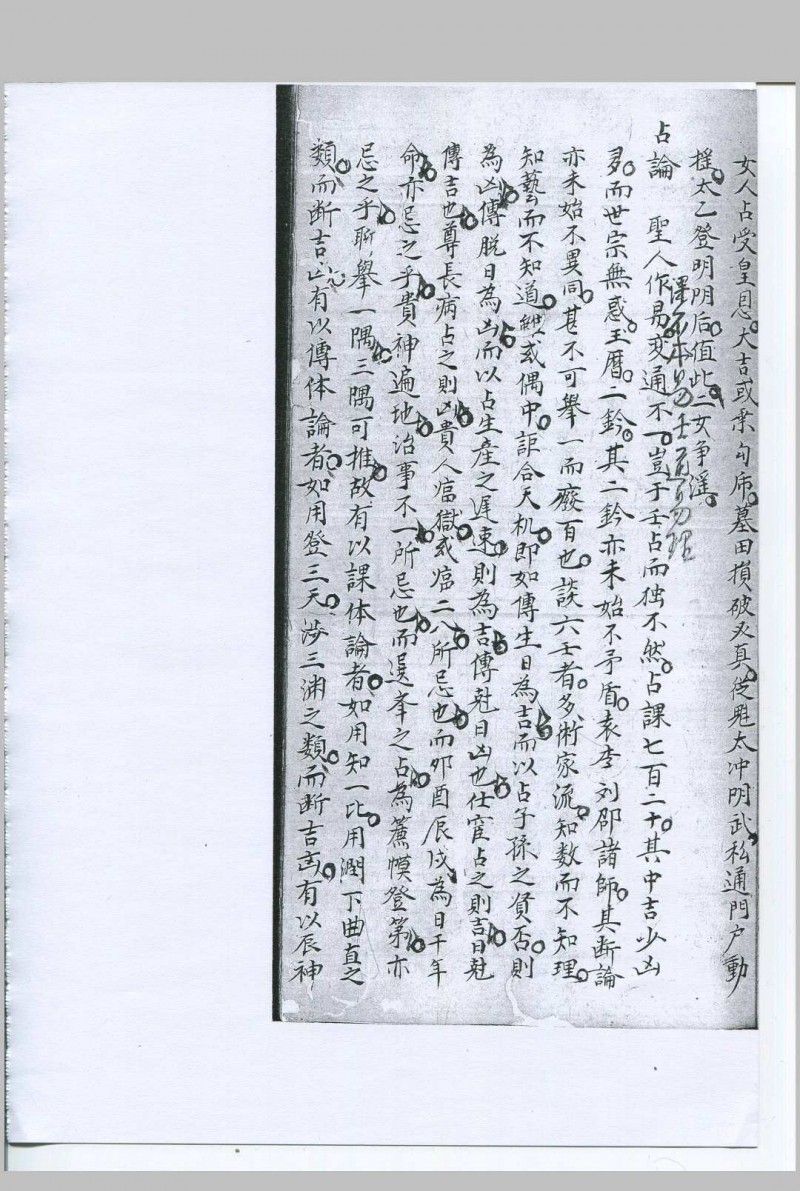 女人占受皇恩。大吉或乘勾席。墓田損破及真。從鬼太冲明武私通門户動
搖。太乙登明阴后。值此二女争淫。
課不本易壬通易理
占論　聖人作易。变通不一。豈于壬占而独不然。占課七百二十。其中吉少凶
多。而世宗無惑。玉曆。二鈐。其二鈐亦未始不矛盾。袁李刘邵諸師。其断論
亦未始不異同。甚不可舉一而廢百也。談六壬者。多術家流。知数而不知理。
知藝而不知道。縱或偶中。詎合天机。即如傳生日為吉。而以占子孫之貟否。則
為凶。傳脱日為凶。而以占生產之遲速。則為吉。傳尅日凶也。仕宦占之則吉。日尅
傳吉也。尊長病占之則凶。貴人臨獄。或臨二八所忌也。而夘酉辰戌為日干年
命。亦忌之乎。貴神遍地。治事不一。所忌也。而選举之占。為簾幙登第。亦
忌之乎。聊舉一隅。三隅可推。故有以課体論者。如用知一比用。潤下曲直之
類。而断吉凶。有以傳体論者。如用登三天。涉三渊之類。而断吉凶。有以辰神